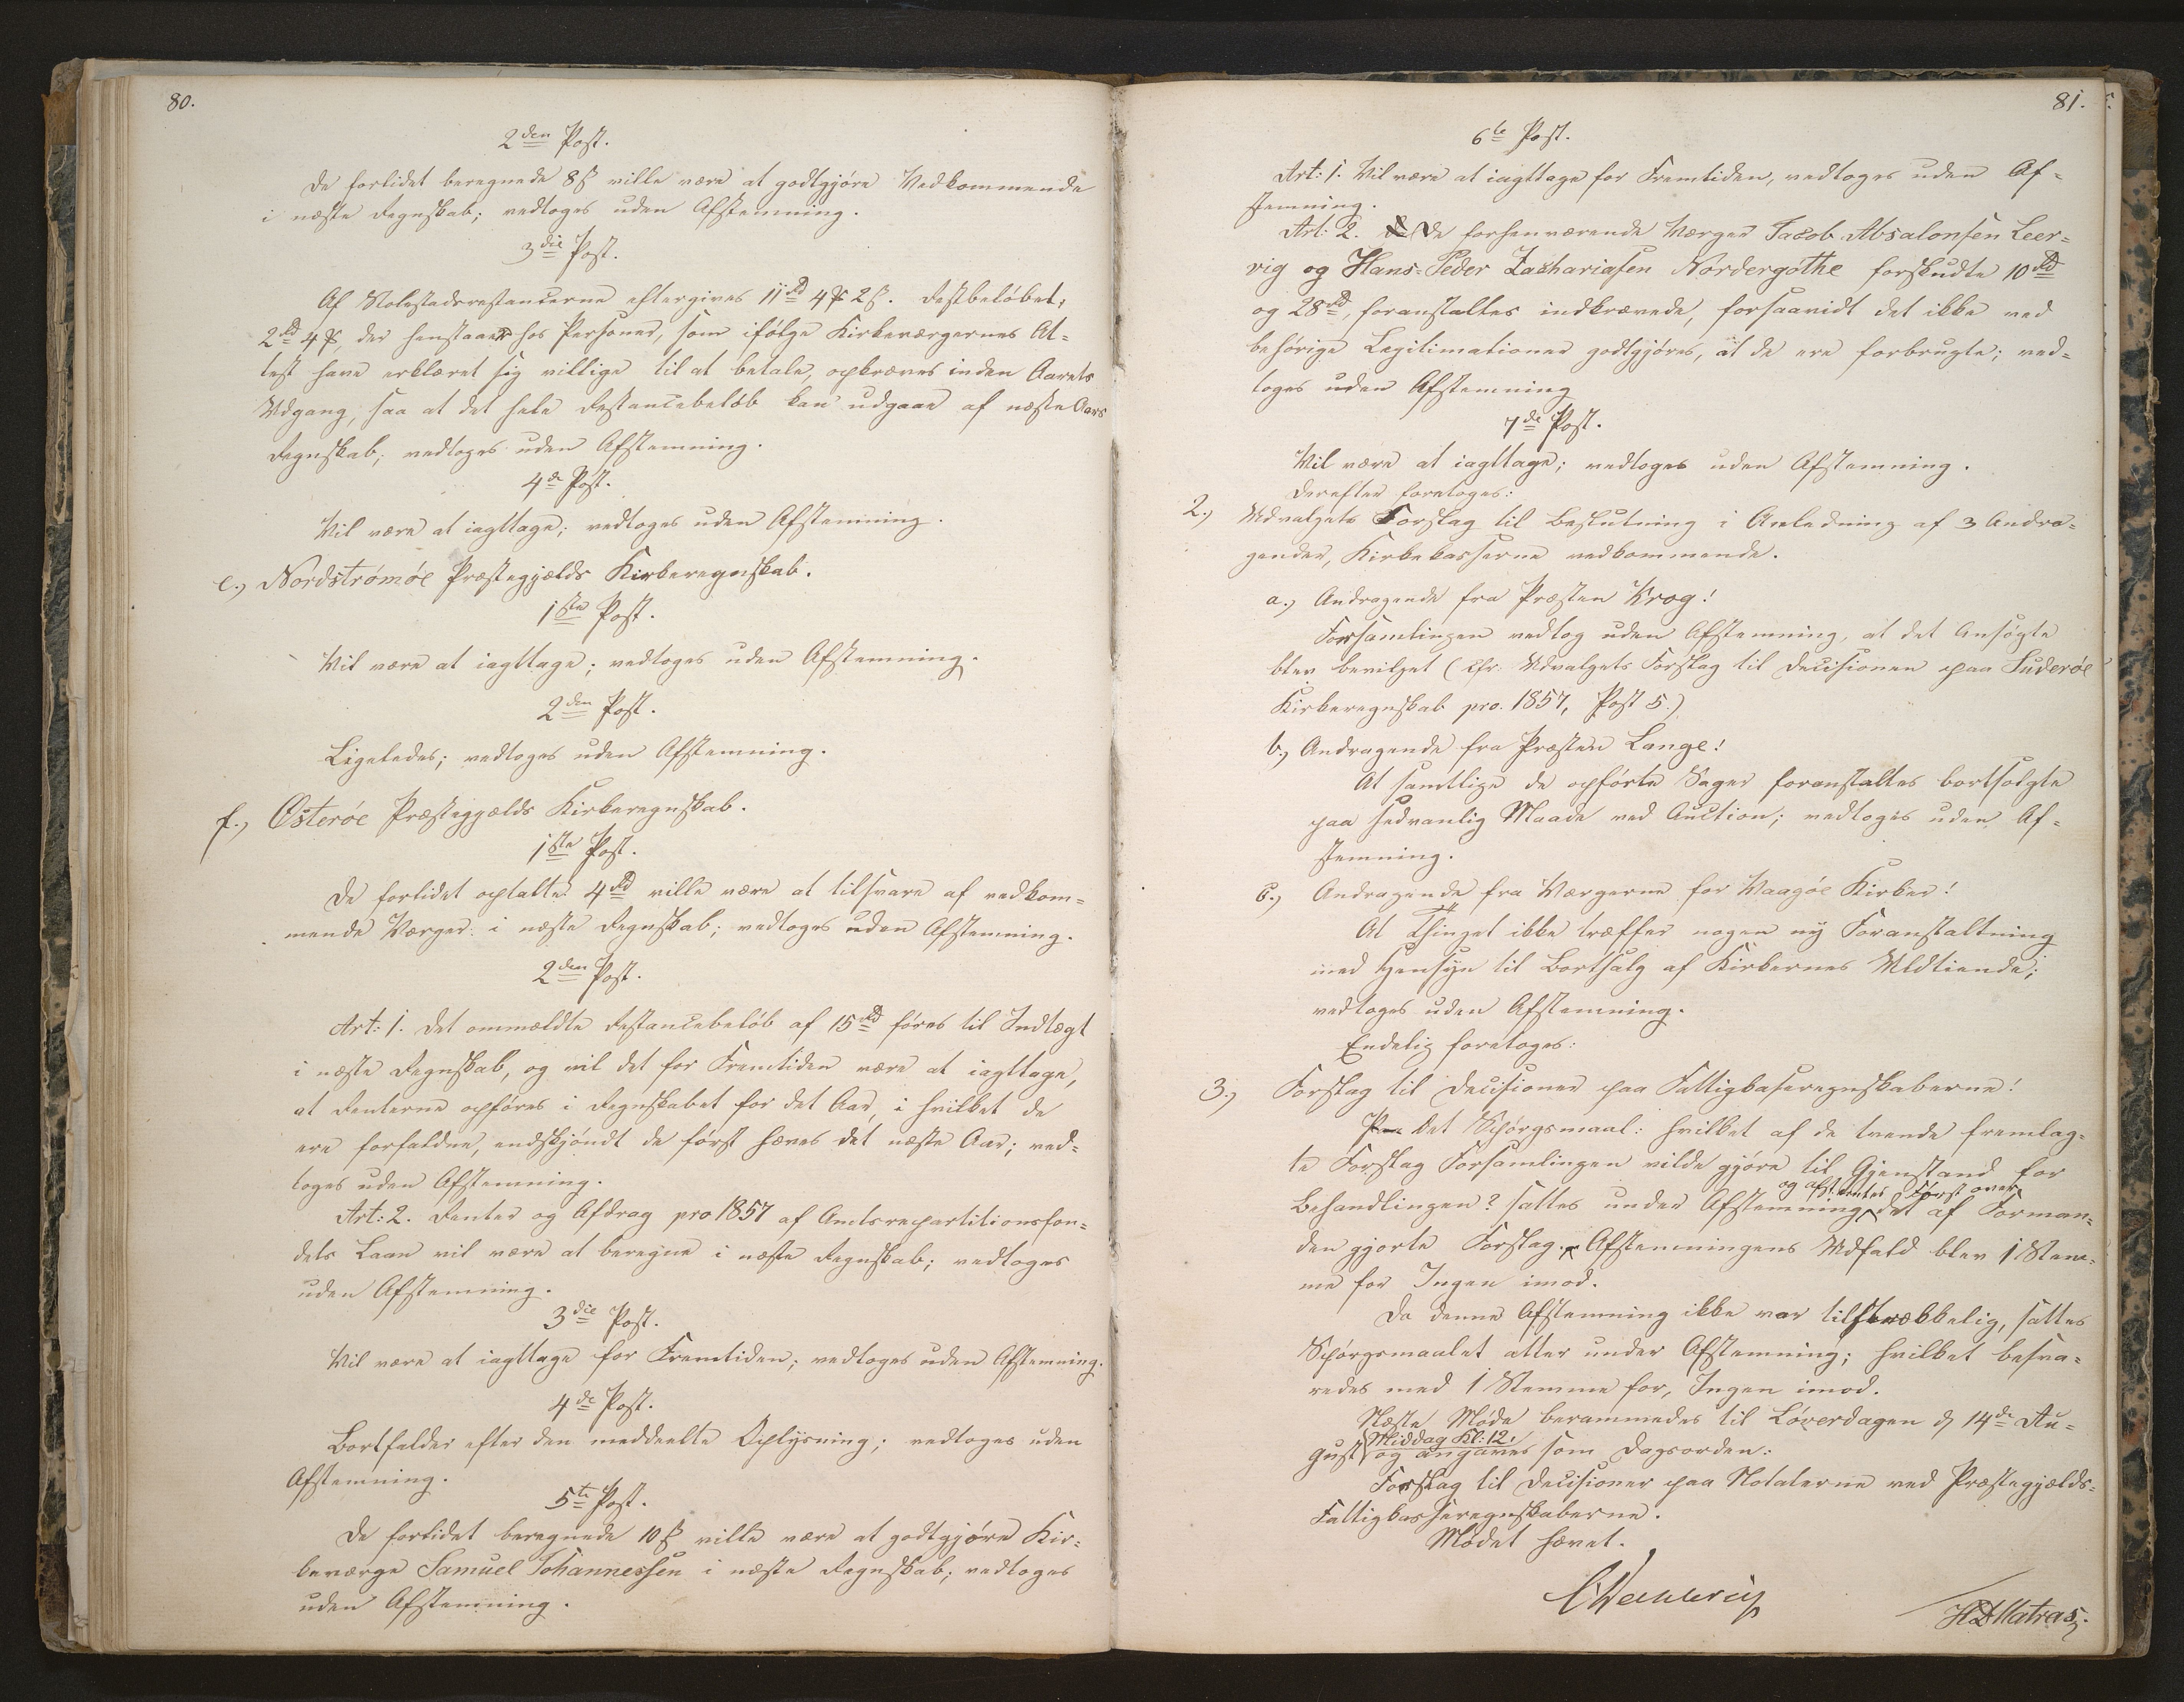 80.
2den Post.
De forlidet beregnede 8 ß ville være at godtgjøre Vedkommende
i næste Regnskab; vedtoges uden Afstemning.
3die Post.
Af Stolestadsrestancerne eftergives 11 Rd 4 ℳ 2 ß. Restbeløbet,
2 Rd 4 ℳ, der henstaaer hos Personer, som ifølge Kirkeværgernes At-
test have erklæret sig villige til at betale, opkræves inden Aarets
Udgang, saa at det hele Restancebeløb kan udgaae af næste Aars
Regnskab; vedtoges uden Afstemning.
4de Post.
Vil være at iagttage; vedtoges uden Afstemning.
e.) Nordstrømøe Præstegjælds Kirkeregnskab.
1ste Post.
Vil være at iagttage; vedtoges uden Afstemning.
2den Post.
Ligeledes; vedtoges uden Afstemning.
f.) Østerøe Præstegjælds Kirkeregnskab.
1ste Post.
De forlidet optalte 4 Rd ville være at tilsvare af vedkom-
mende Værger i næste Regnskab; vedtoges uden Afstemning.
2den Post.
Art: 1. Det ommældte Restancebeløb af 15 Rd føres til Indtægt
i næste Regnskab, og vil det for Fremtiden være at iagttage,
at Renterne opføres i Regnskabet for det Aar, i hvilket de
ere forfaldne, endskjøndt de først hæves det næste Aar; ved-
toges uden Afstemning.
Art: 2. Renter og Afdrag pro 1857 af Amtsrepartitionsfon-
dets Laan vil være at beregne i næste Regnskab; vedtoges
uden Afstemning.
3die Post.
Vil være at iagttage for Fremtiden; vedtoges uden Afstemning.
4de Post.
Bortfalder efter den meddeelte Oplysning; vedtoges uden
Afstemning.
5te Post.
De forlidet beregnede 10 ß ville være at godtgjøre Kir-
keværge Samuel Johannessen i næste Regnskab; vedtoges
uden Afstemning.
81.
6te Post.
Art: 1. Vil være at iagttage for Fremtiden, vedtoges uden Af-
stemning.
Art: 2. De forhenværende Værger Jacob Absalonsen Leer-
vig og Hans-Peder Zachariasen Nordergøthe forskudte 10 Rd
og 28 Rd, foranstaltes indkrævede, forsaavidt det ikke ved
behørige Legitimationer godtgjøres, at de ere forbrugte; ved-
toges uden Afstemning
7de Post.
Vil være at iagttage; vedtoges uden Afstemning.
Derefter foretoges:
2.) Udvalgets Forslag til Beslutning i Anledning af 3 Andra-
gender, Kirkekasserne vedkommende.
a.) Andragende fra Præsten Krog!
Forsamlingen vedtog uden Afstemning, at det Ansøgte
blev bevilget (Cfr. Udvalgets Forslag til Decisionen paa Suderøe
Kirkeregnskab pro. 1857, Post 5.)
b.) Andragende fra Præsten Lange!
At samtlige de opførte Sager foranstaltes bortsolgte
paa sedvanlig Maade ved Auction; vedtoges uden Af-
stemning.
c.) Andragende fra Værgerne for Waagøe Kirker!
At Thinget ikke træffer nogen ny Foranstaltning
med Hensyn til Bortsalg af Kirkernes Uldtiende;
vedtoges uden Afstemning.
Endelig foretoges:
3.) Forslag til Decisioner paa Fattigkasseregnskaberne!
Det Spørgsmaal: hvilket af de tvende fremlag-
te Forslag Forsamlingen vilde gjøre til Gjenstand for
og afstemtes Først over
Behandlingen? sattes under Afstemning det af Forman-
den gjorte Forslag. Afstemningens Udfald blev 1 Stem-
me for Ingen imod.
Da denne Afstemning ikke var tilstrækkelig, sattes
Spørgsmaalet atter under Afstemning; hvilket besva-
redes med 1 Stemme for, Ingen imod.
Næste Møde berammedes til Løverdagen d. 14de Au-
Middag Kl: 12.
gust og angaves som Dagsorden:
Forslag til Decisioner paa Notaterne ved Præstegjælds-
Fattigkasseregnskaberne.
Mødet hævet.
HDMatras